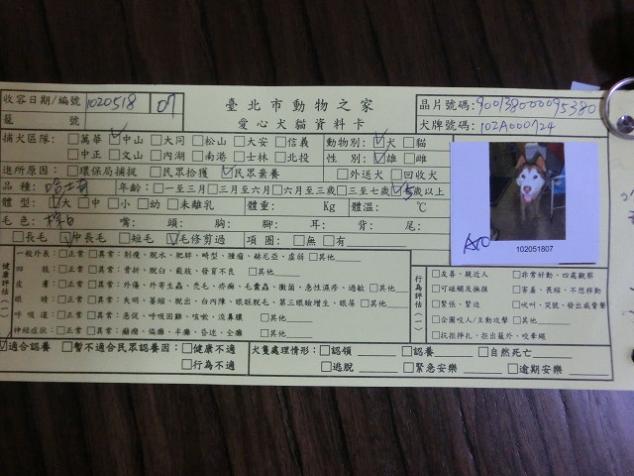 收容日期/編號 1020518 07 臺北市動物之家 晶片號碼:900138000095380
籠號 愛心犬貓資料卡 犬牌號碼:102A000724
捕犬區隊: □萬華 ☑中山 □大同 □松山 □大安 □信義 動物別: ☑犬 □貓
□中正 □文山 □內湖 □南港 □士林 □北投 性別: ☑雄 □雌
進所原因: □環保局捕捉 □民眾拾獲 ☑民眾棄養 □外送犬 □回收犬
品種: 哈士奇 年齡: □一至三月 □三月至六月 □六月至三歲 □三至七歲 以上
體型: ☑大 □中 □小 □幼 □未離乳 體重: Kg 體溫: ℃
毛色: 嘴: 頭: 胸: 腳: 耳: 背: 尾:
□長毛 ☑中長毛 □短毛 ☑毛修剪過 項圈: □無 □有
102051807
健康評估(一)
一般外表: □正常 □異常: 削瘦、脫水、肥胖、畸型、腫瘤、赫尼亞、虛弱 □其他
四肢: □正常 □異常: 骨折、脫臼、截肢、發育不良 □其他
皮膚: □正常 □異常: 外傷、外寄生蟲、禿毛、疥癬、毛囊蟲、黴菌、急性濕疹、過敏 □其他
眼睛: □正常 □異常: 失明、萎縮、脫出、白內障、眼瞼脫毛、第三眼瞼增生、眼屎 □其他
呼吸道: □正常 □異常: 急促、呼吸困難、咳嗽、流鼻膿 □其他
神經症狀: □正常 □異常: 癲癇、偏癱、半癱、昏迷、全癱 □其他
行為評估(一)
□友善、親近人 □非常好動、四處觀察
□可碰觸及撫摸 □害羞、畏縮、不想移動
□緊張、緊迫 □吠叫、哭號、發出威脅聲
□企圖咬人/主動攻擊 □其他
□抗拒掙扎、拒出籠外、咬牽繩
☑適合認養 □暫不適合民眾認養因: □健康不適 犬隻處理情形: □認領 □認養 □自然死亡
□行為不適 □逃脫 □緊急安樂 □逾期安樂